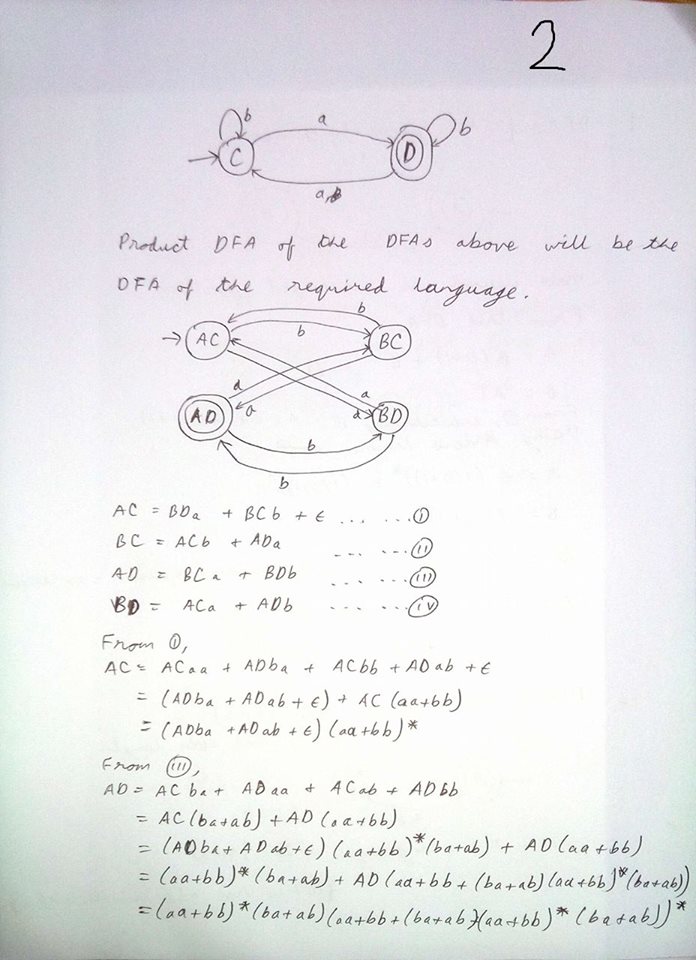 2
b
a
b
C
D
a
Product DFA of the DFAs above will be the
DFA of the required language.
b
AC
b
BC
a
a
AD
a
a
BD
b
b
AC = BDa + BCb + ϵ ... ... (i)
BC = ACb + ADa ... ... (ii)
AD = BCa + BDb ... ... (iii)
BD = ACa + ADb ... ... (iv)
From (i),
AC = ACaa + ADba + ACbb + ADab + ϵ
= (ADba + ADab + ϵ) + AC (aa+bb)
= (ADba + ADab + ϵ) (aa+bb)*
From (iii),
AD = ACba + ADaa + ACab + ADbb
= AC(ba+ab) + AD (aa+bb)
= (ADba + ADab + ϵ) (aa+bb)*(ba+ab) + AD(aa+bb)
= (aa+bb)*(ba+ab) + AD(aa+bb + (ba+ab)(aa+bb)*(ba+ab))
= (aa+bb)*(ba+ab)(aa+bb+(ba+ab)(aa+bb)*(ba+ab))*